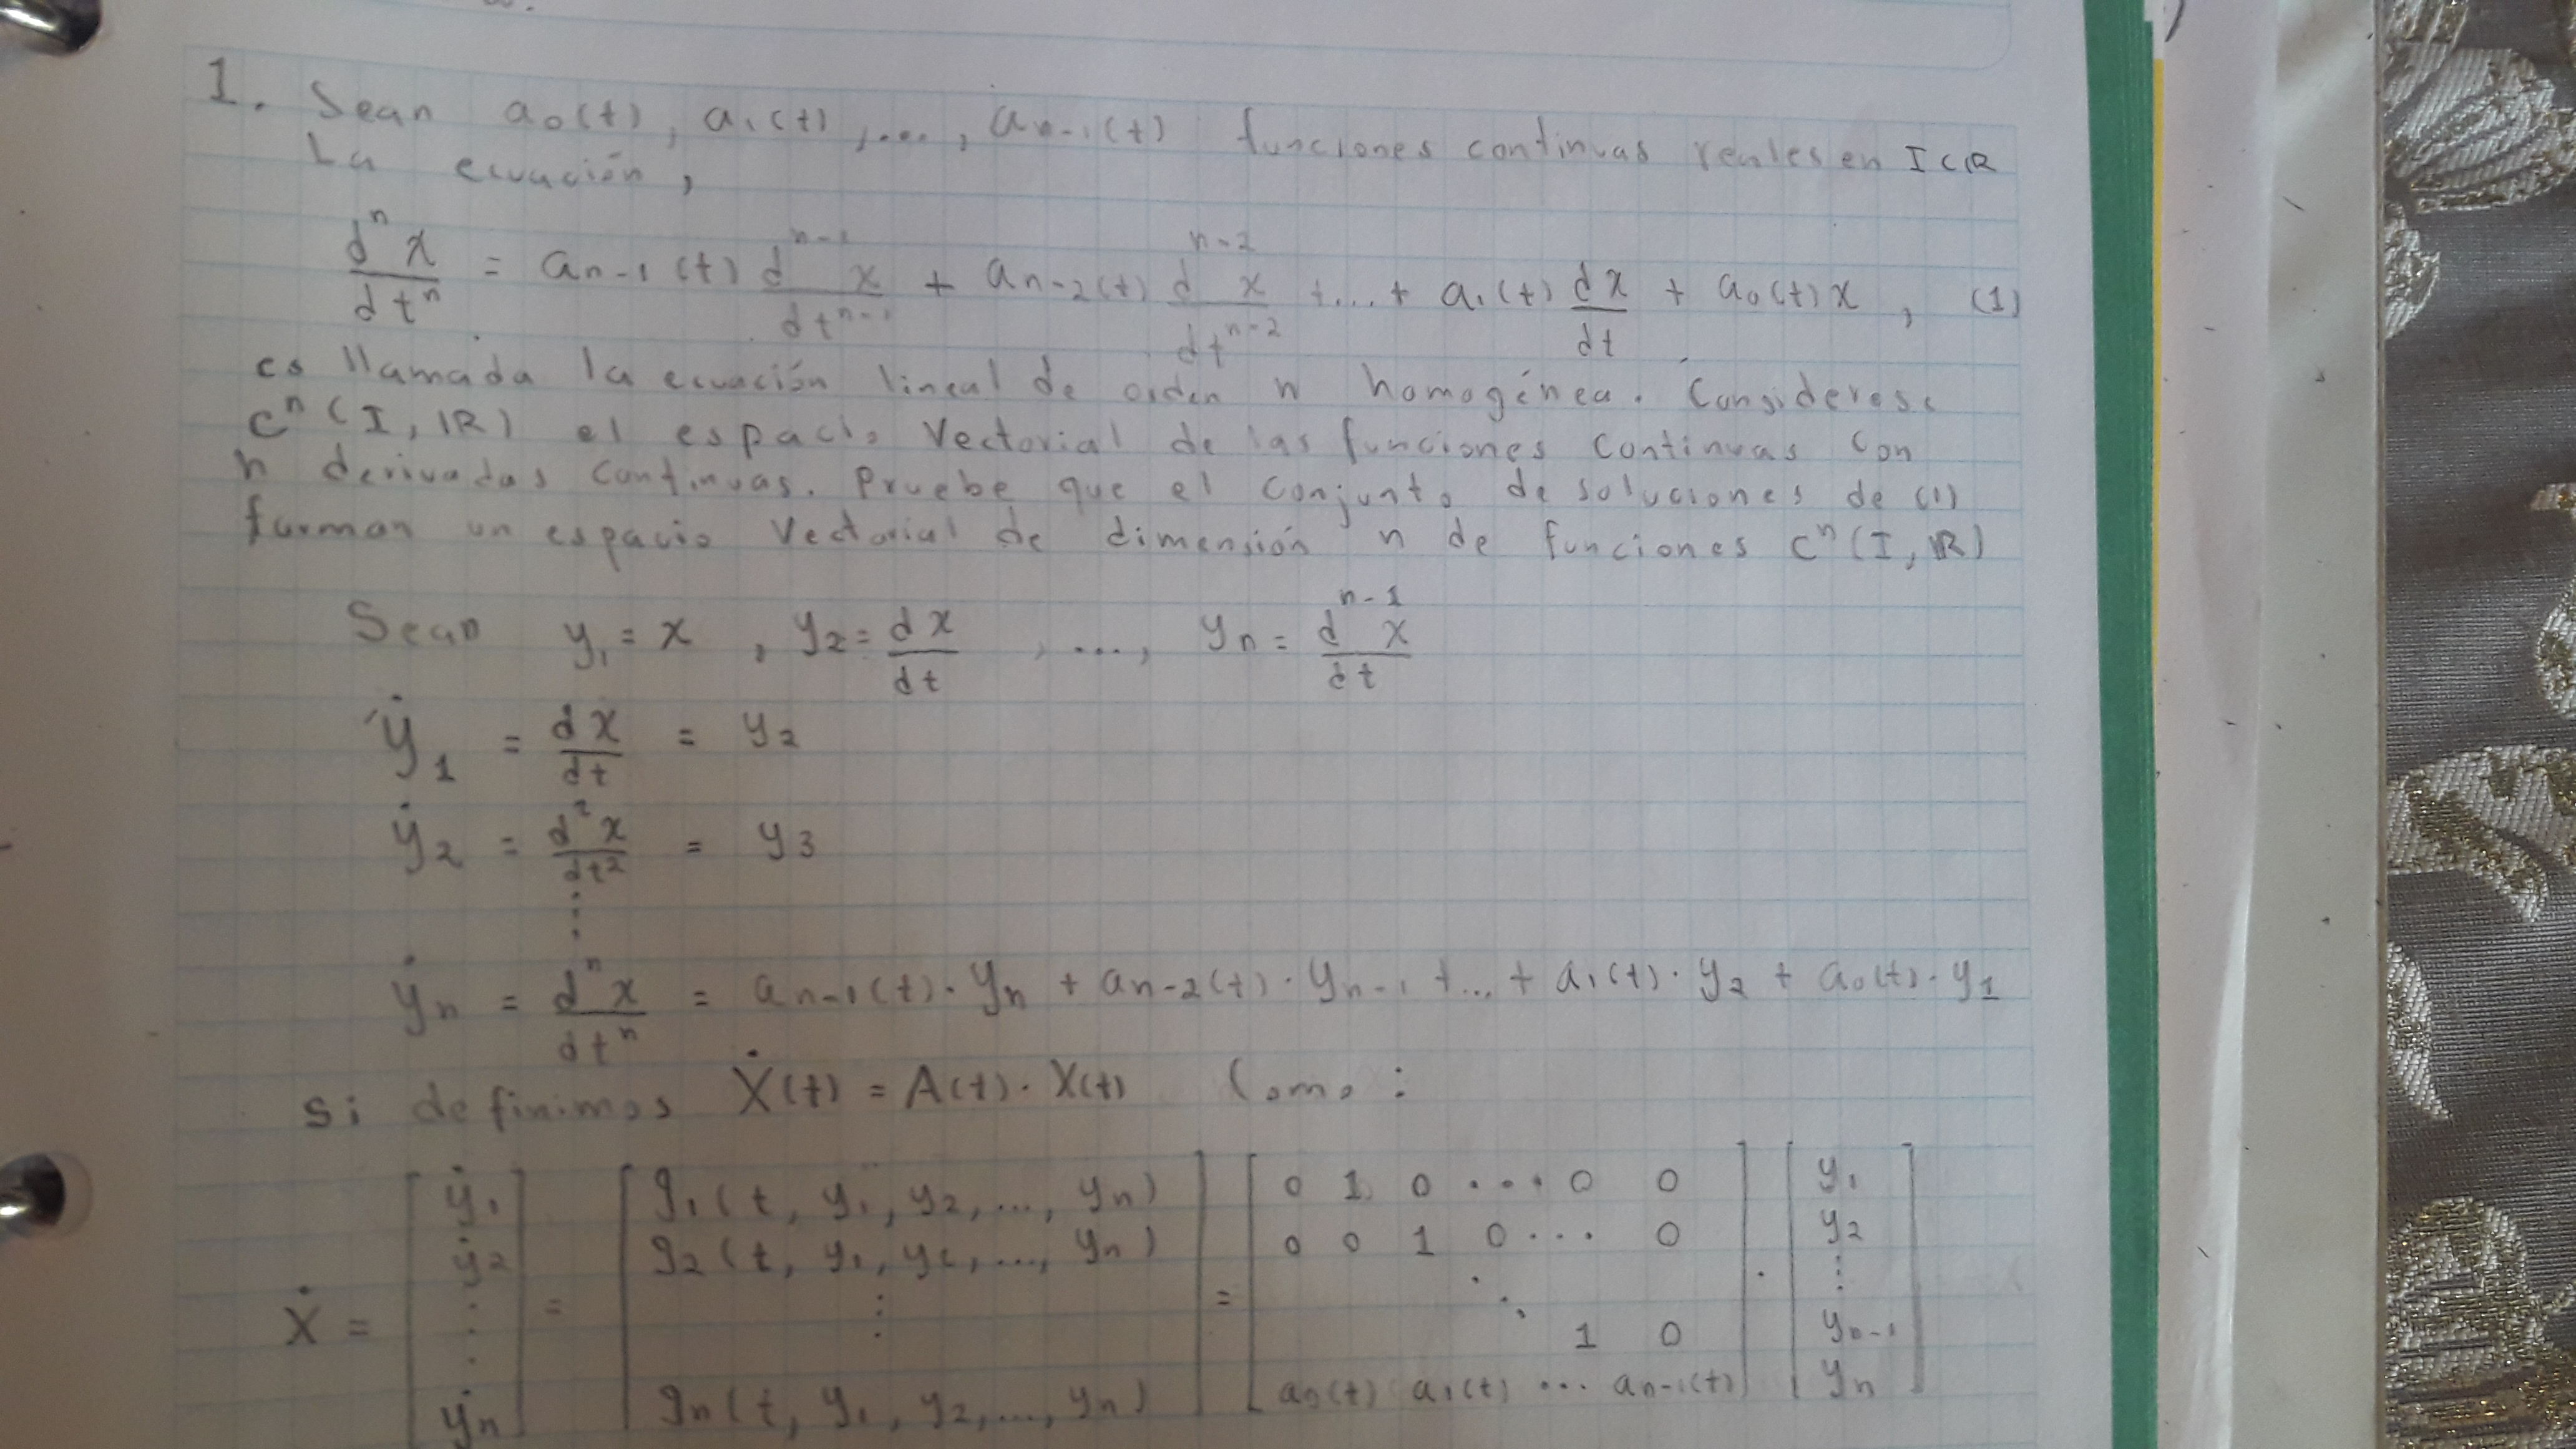 1. Sean a₀(t), a₁(t), ..., aₙ₋₁(t) funciones continuas reales en I⊂ℝ
La ecuación,
dⁿx/dtⁿ = aₙ₋₁(t) dⁿ⁻¹x/dtⁿ⁻¹ + aₙ₋₂(t) dⁿ⁻²x/dtⁿ⁻² + ... + a₁(t) dx/dt + a₀(t)x , (1)
es llamada la ecuación lineal de orden n homogénea. Considerese
Cⁿ(I, ℝ) el espacio Vectorial de las funciones continuas con
n derivadas continuas. Pruebe que el conjunto de soluciones de (1)
forman un espacio Vectorial de dimensión n de funciones Cⁿ(I, ℝ)
Sean y₁ = x , y₂ = dx/dt , ..., yₙ = dⁿ⁻¹x/dt
ẏ₁ = dx/dt = y₂
ẏ₂ = d²x/dt² = y₃
⋮
ẏₙ = dⁿx/dtⁿ = aₙ₋₁(t)·yₙ + aₙ₋₂(t)·yₙ₋₁ + ... + a₁(t)·y₂ + a₀(t)·y₁
si definimos Ẋ(t) = A(t)·X(t) Como :
Ẋ = [ẏ₁ ẏ₂ ⋮ ẏₙ] = [g₁(t, y₁, y₂, ..., yₙ) g₂(t, y₁, y₂, ..., yₙ) ⋮ gₙ(t, y₁, y₂, ..., yₙ)] = [0 1 0 ... 0 0 0 0 1 0 ... 0 ⋱ 1 0 a₀(t) a₁(t) ... aₙ₋₁(t)] · [y₁ y₂ ⋮ yₙ₋₁ yₙ]